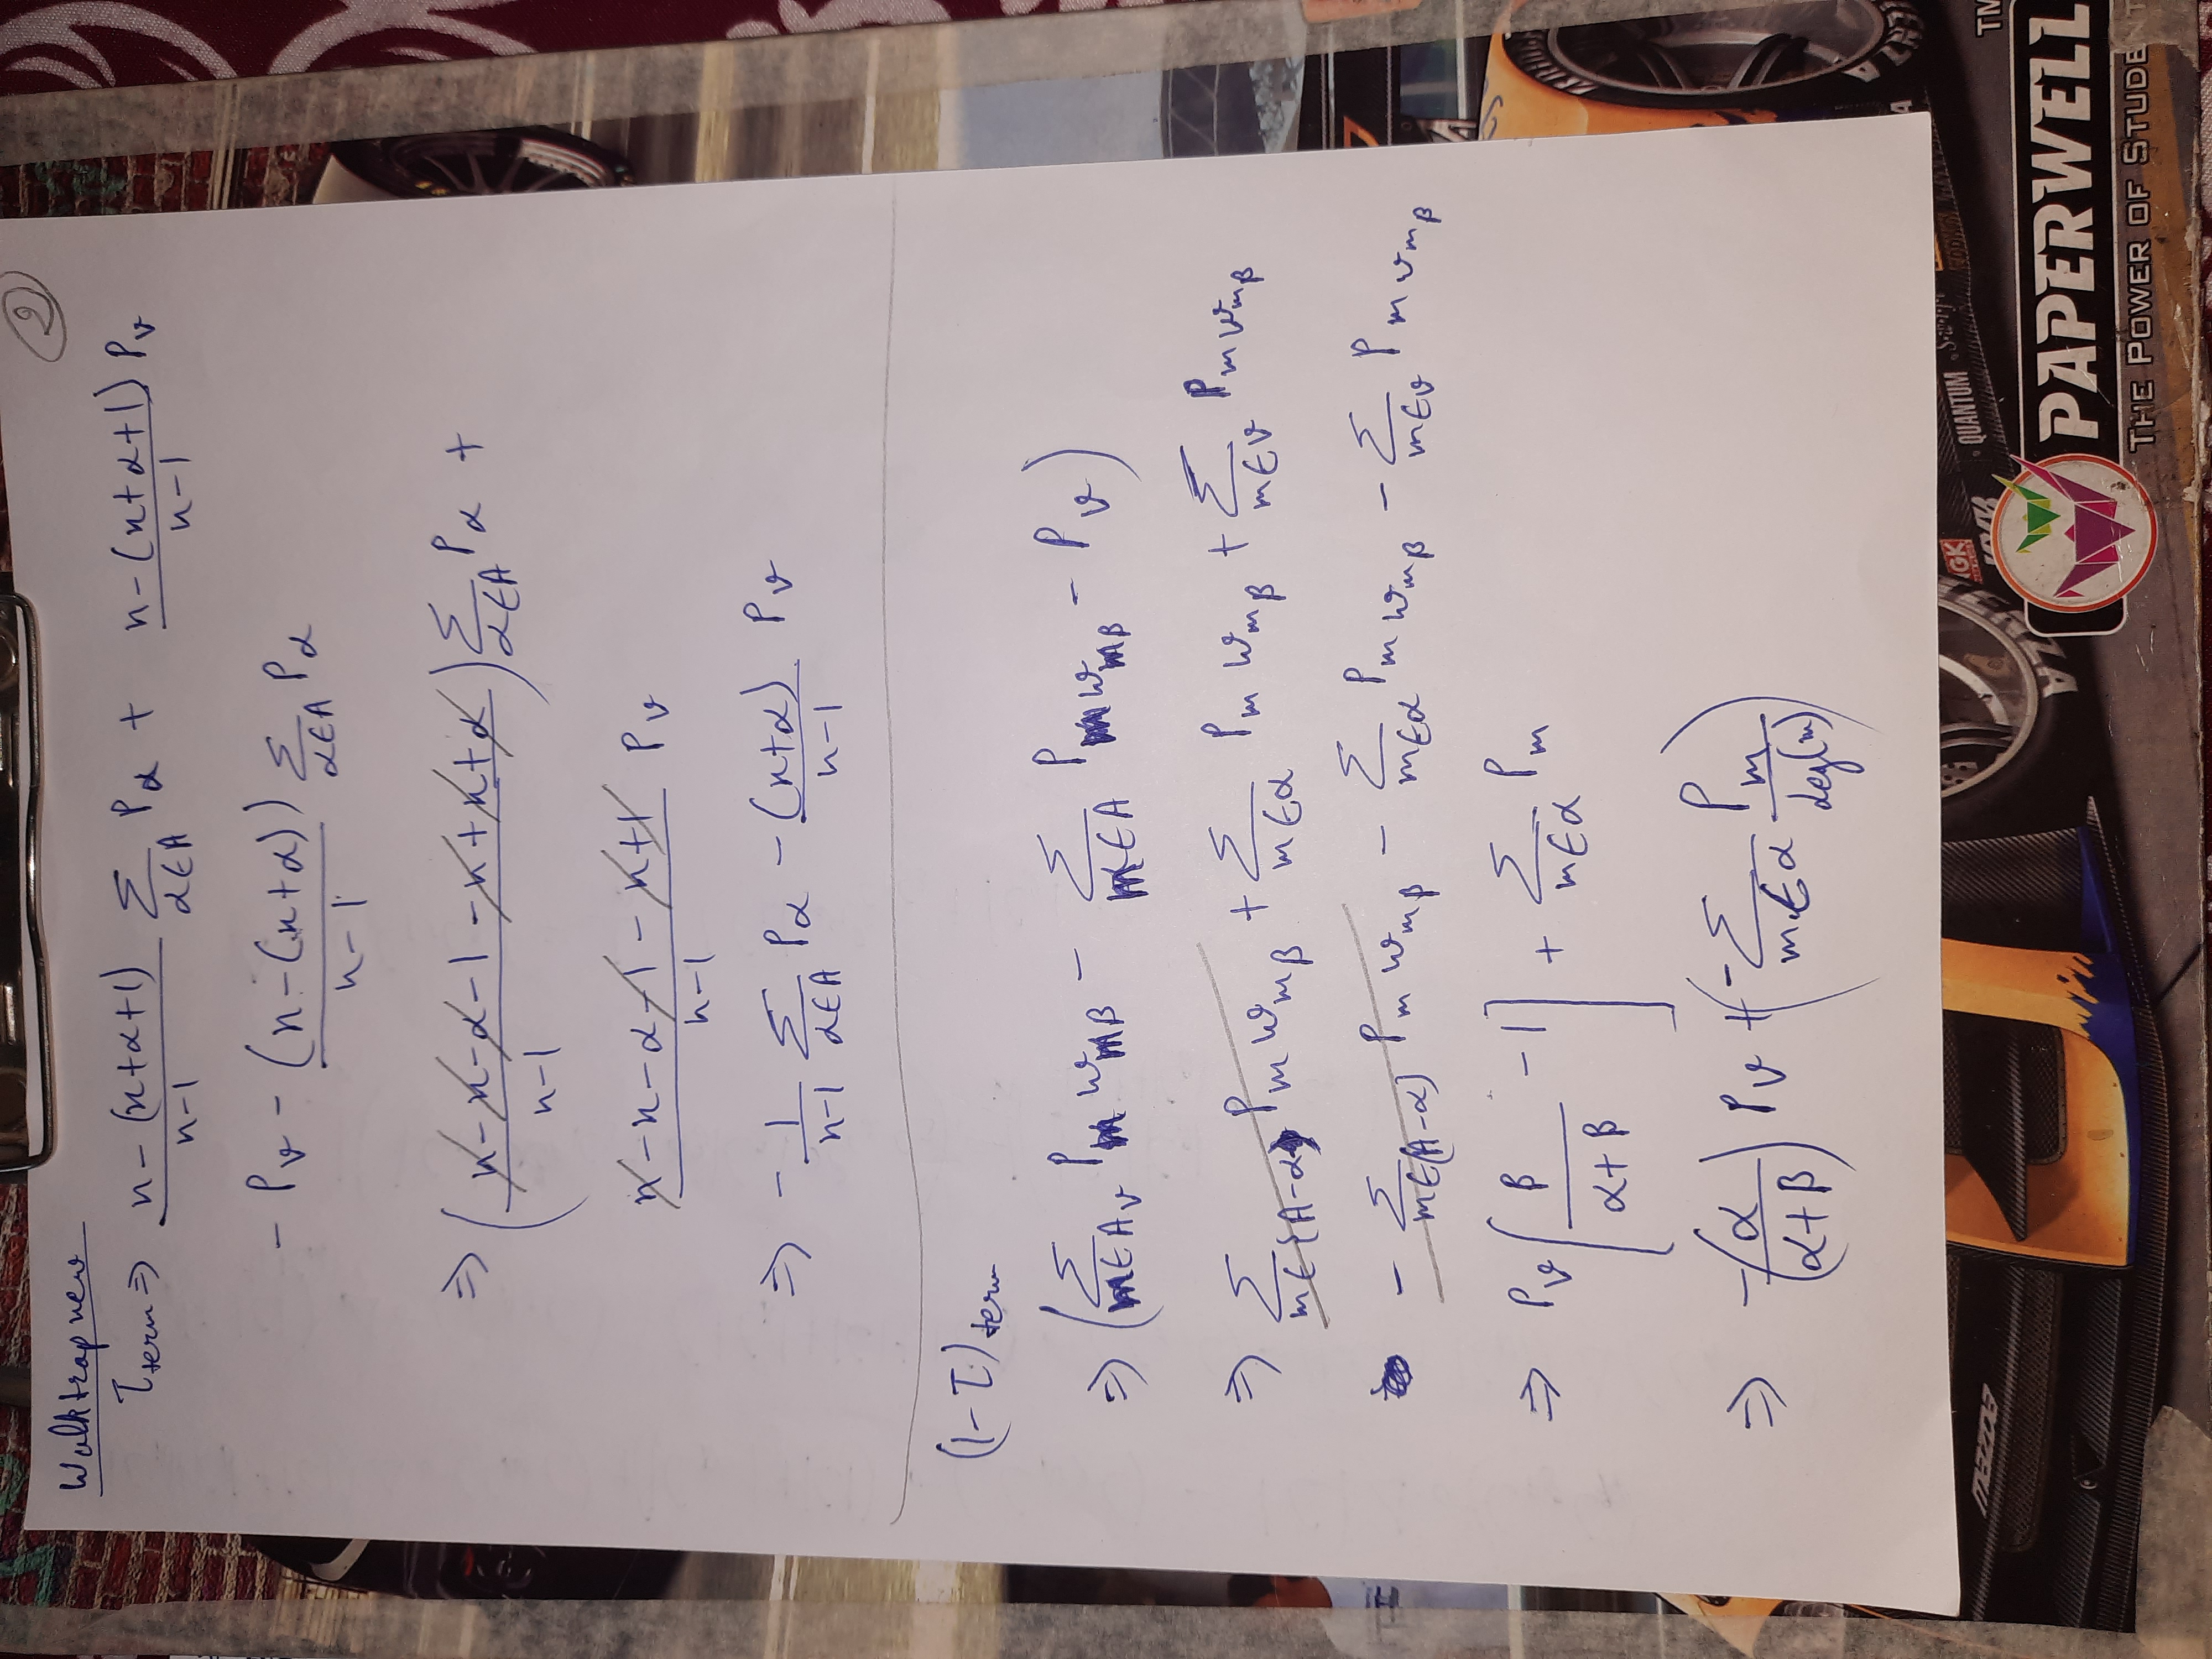 2
Walktrap new
τ_term ⇒ (n-(x+α+1))/(n-1) Σ_{α∈A} P_α + (n-(x+α+1))/(n-1) P_v
- P_v - (n-(x+α))/(n-1) Σ_{α∈A} P_α
⇒ ((n-x-α-1-n+x+α)/(n-1)) Σ_{α∈A} P_α +
(n-x-α-1-n+1)/(n-1) P_v
⇒ -1/(n-1) Σ_{α∈A} P_α - (x+α)/(n-1) P_v
(1-τ)_term
⇒ (Σ_{m∈A_v} P_m w_{mβ} - Σ_{m∈A} P_m w_{mβ} - P_v)
⇒ Σ_{m∈{A-α}} P_m w_{mβ} + Σ_{m∈α} P_m w_{mβ} + Σ_{m∈v} P_m w_{mβ}
- Σ_{m∈(A-α)} P_m w_{mβ} - Σ_{m∈α} P_m w_{mβ} - Σ_{m∈v} P_m w_{mβ}
⇒ P_v [β/(α+β) - 1] + Σ_{m∈α} P_m
⇒ -(α/(α+β)) P_v + (-Σ_{m∈α} P_m/deg(m))
mazda
NGK
QUANTUM
TM
PAPERWELL
THE POWER OF STUDENT